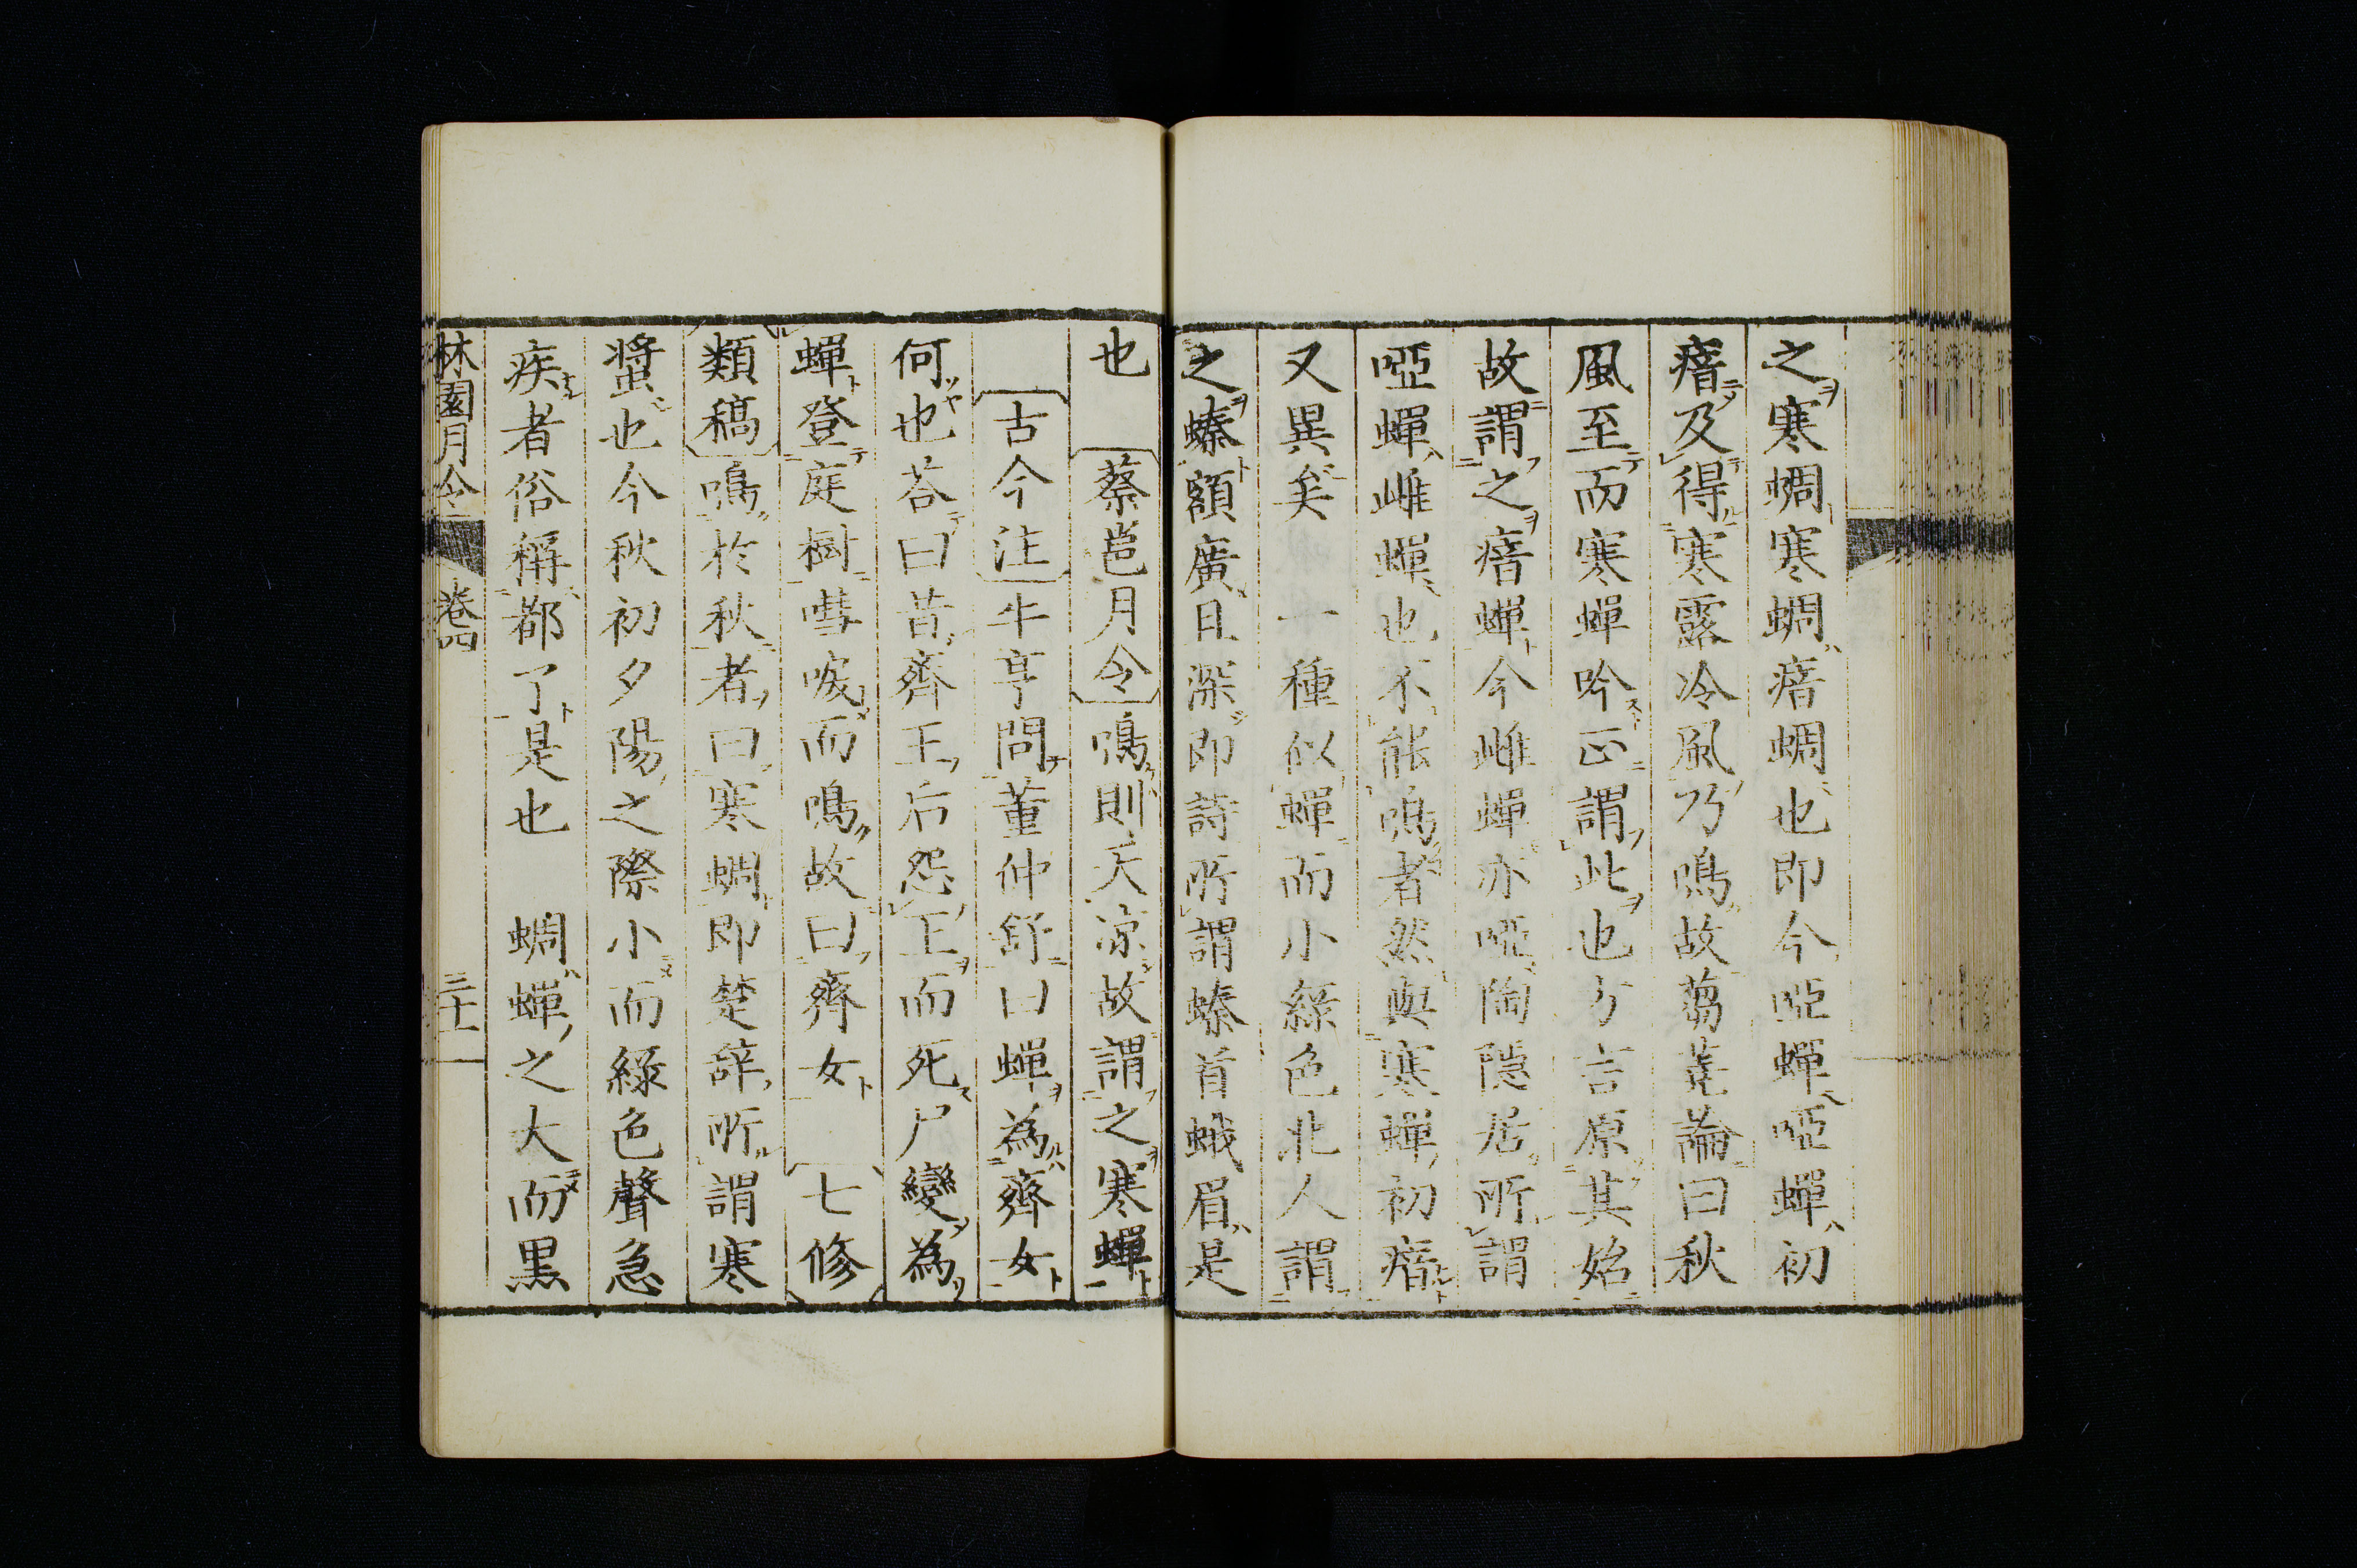 之寒蜩寒蜩瘖蜩也即今啞蟬啞蟬初
瘖及得寒露冷風乃鳴故蒭蕘論曰秋
風至而寒蟬吟正謂此也方言原其始
故謂之瘖蟬今雌蟬亦啞陶隱居所謂
啞蟬雌蟬也不能鳴者然與寒蟬初瘖
又異矣　一種似蟬而小綠色北人謂
之螓額廣且深即詩所謂螓首蛾眉是
也　蔡邕月令鳴則天凉故謂之寒蟬
古今注牛亨問董仲舒曰蟬為齊女
何也荅曰昔齊王后怨王而死尸變為
蟬登庭樹嘒唳而鳴故曰齊女　七修
類稿鳴於秋者曰寒蜩即楚辭所謂寒
螿也今秋初夕陽之際小而綠色聲急
疾者俗稱都了是也　蜩蟬之大而黒
林園月令　卷四　三十一